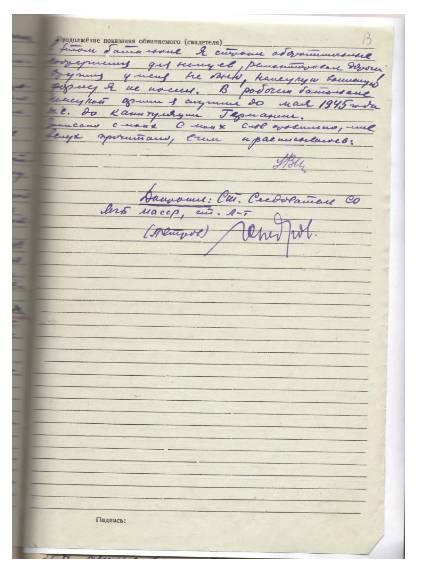 13
Продолжение показания обвиняемого (свидетеля)
этом батальоне я строил оборонительные
сооружения для немцев, ремонтировал дороги
оружия у меня не было, немецкую военную
форму я не носил. В рабочем батальоне
немецкой армии я служил до мая 1945 года
т.е. до капитуляции Германии.
с моих слов правильно, мне
вслух прочитано, в чем и расписываюсь:
Допросил: Ст. Следователь СО
МГБ МАССР, ст. л-т
(Петров)
Подпись: